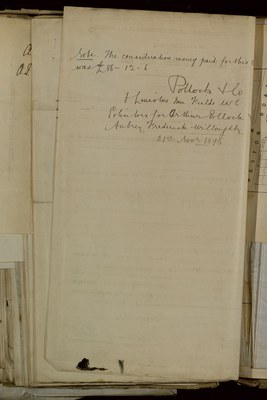 Note. The consideration money paid for this
was £88-12-6
Pollock & Co
Lincolns Inn Fields WC
Solicitors for Arthur Pollock
Aubrey Frederick Willoughby
21st Novr